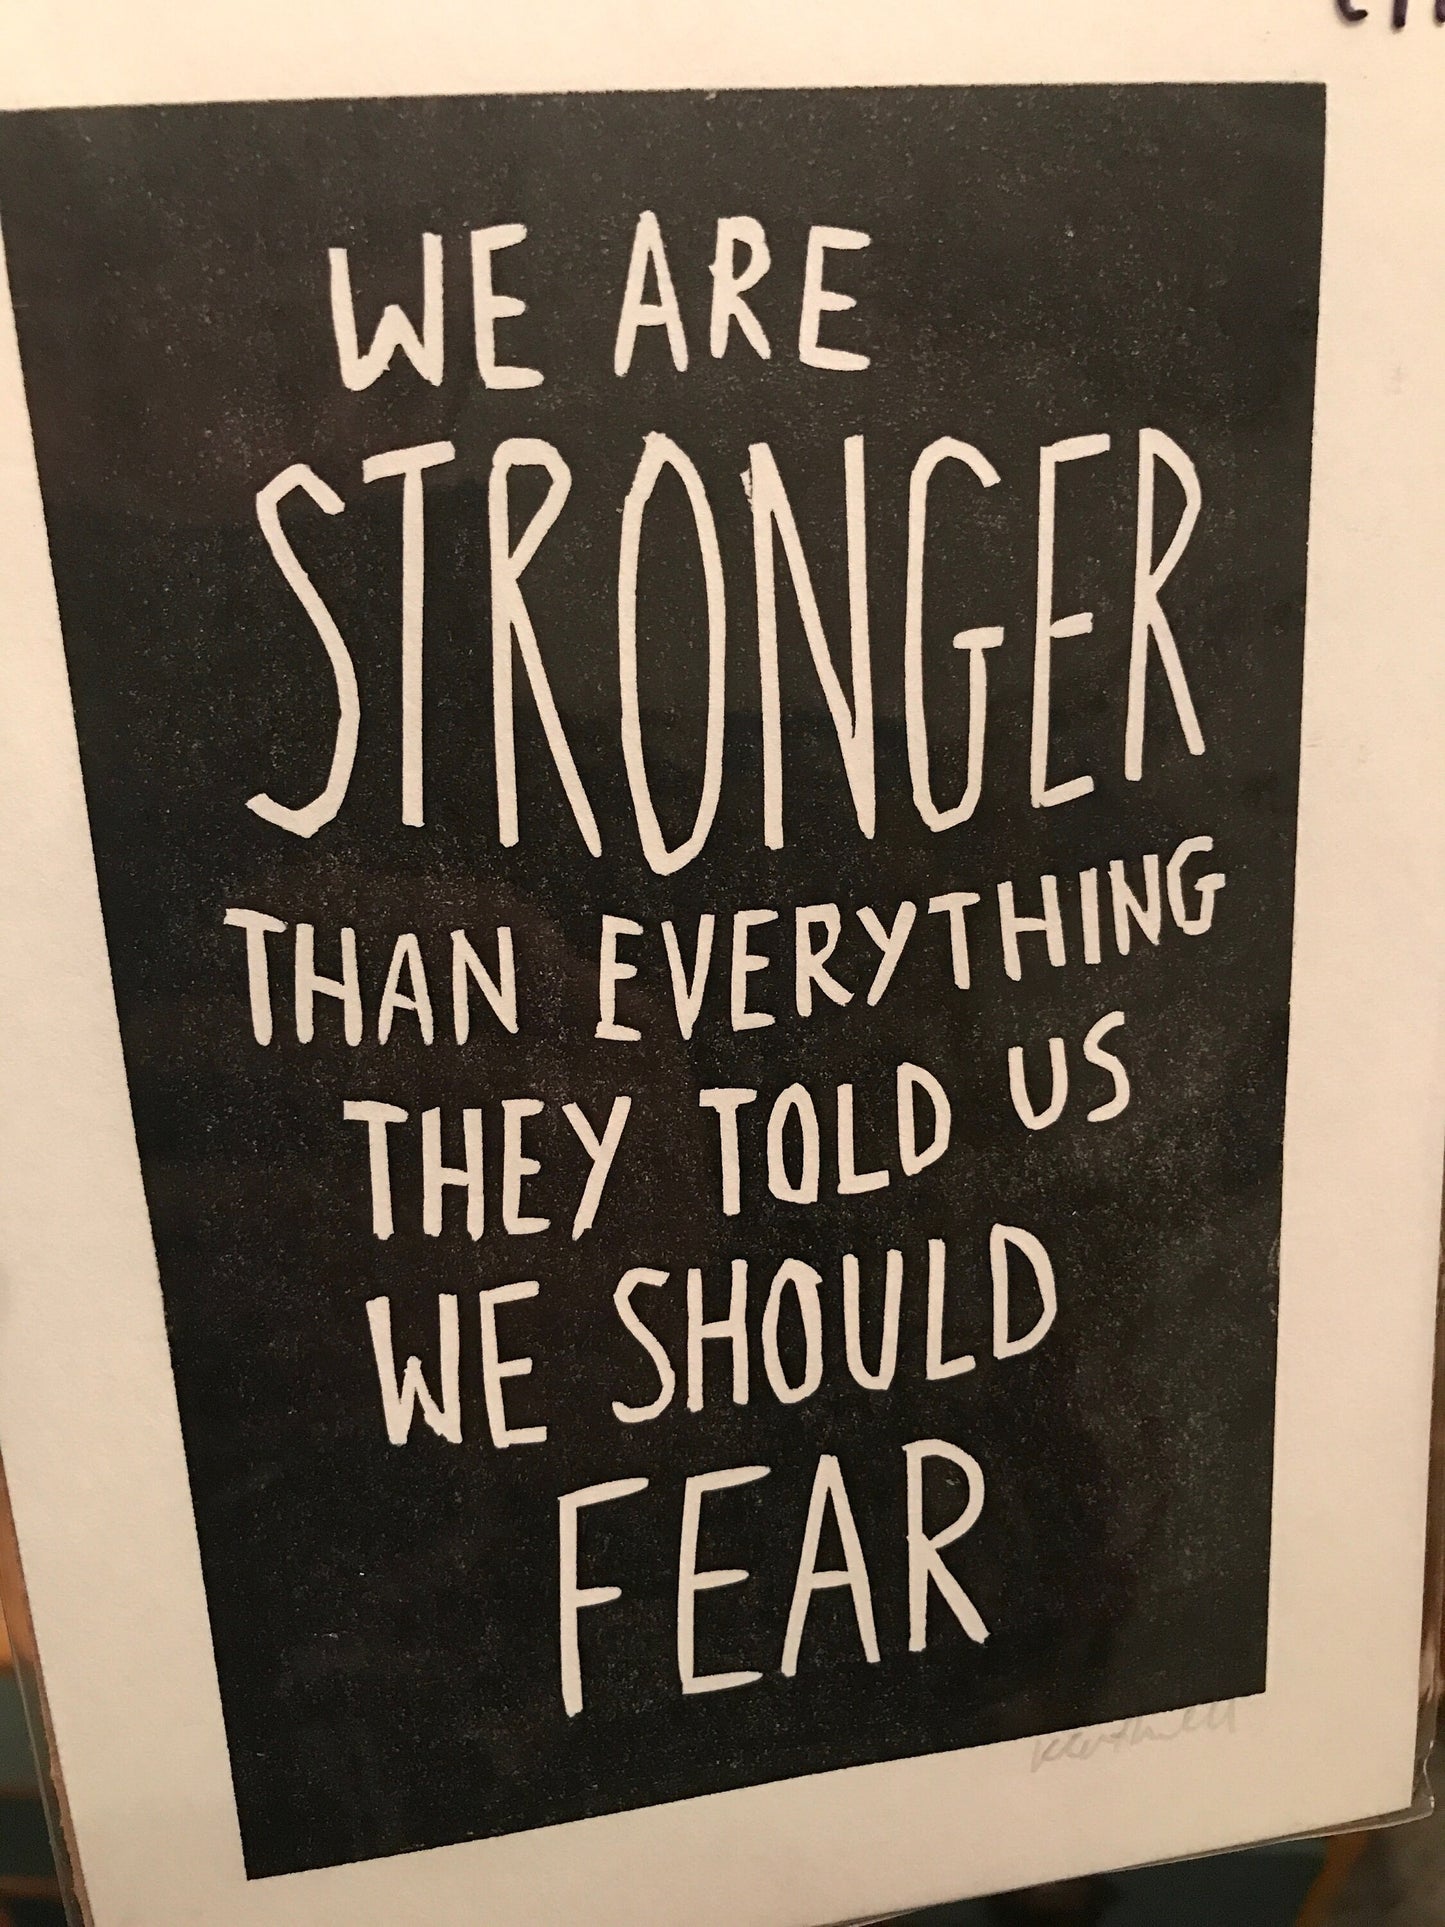 WE ARE
STRONGER
THAN EVERYTHING
THEY TOLD US
WE SHOULD
FEAR